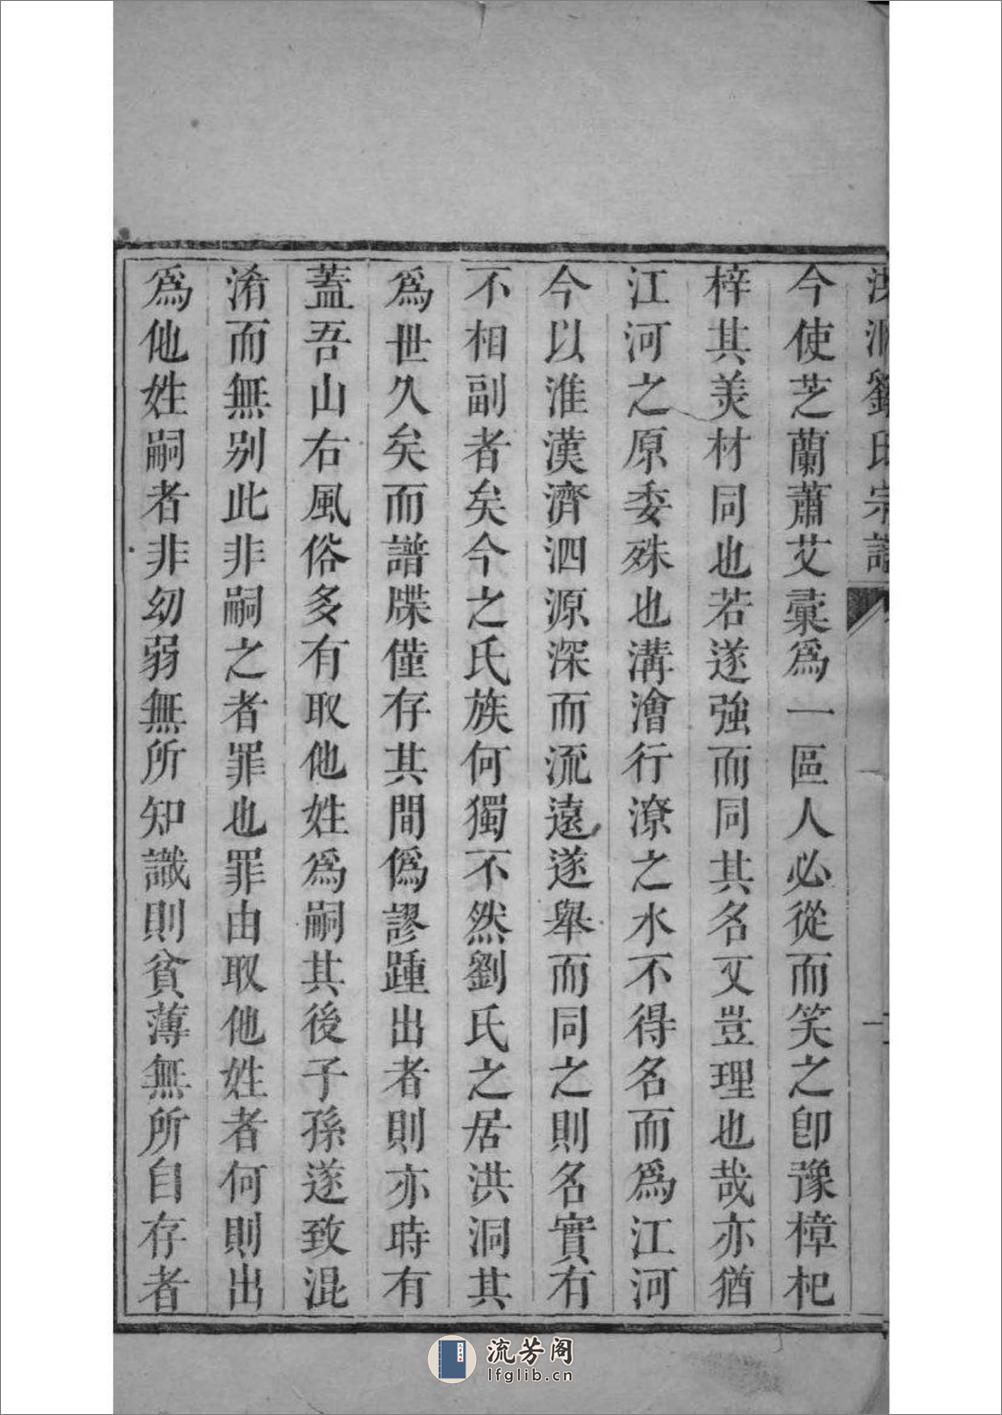 洪洞劉氏宗譜
今使芝蘭蕭艾彚爲一區人必從而笑之卽豫樟杞
梓其美材同也若遂強而同其名又豈理也哉亦猶
江河之原委殊也溝澮行潦之水不得名而爲江河
今以淮漢濟泗源深而流遠遂舉而同之則名實有
不相副者矣今之氏族何獨不然劉氏之居洪洞其
爲世久矣而譜牒僅存其間僞謬踵出者則亦時有
蓋吾山右風俗多有取他姓爲嗣其後子孫遂致混
淆而無别此非嗣之者罪也罪由取他姓者何則出
爲他姓嗣者非幼弱無所知識則貧薄無所自存者
流芳阁
lfglib.cn